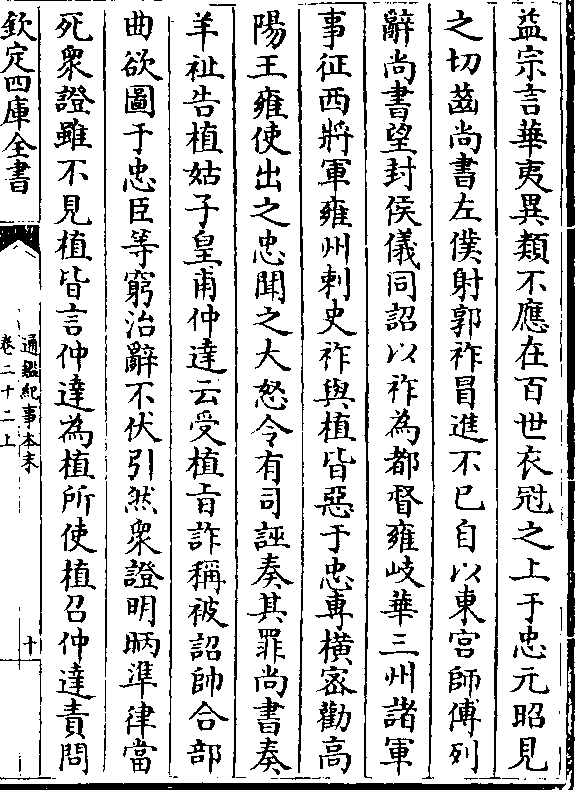 益宗言華夷異類不應在百世衣冠之上于忠元昭見
之切齒尚書左僕射郭祚冒進不已自以東宫師傅列
辭尚書望封侯儀同詔以祚為都督雍岐華三州諸軍
事征西將軍雍州刺史祚與植皆惡于忠專横宻勸髙
陽王雍使出之忠聞之大怒令有司誣奏其罪尚書奏
羊祉告植姑子皇甫仲達云受植㫖詐稱被詔帥合部
曲欲圖于忠臣等窮治辭不伏引然衆證明昞準律當
死衆證雖不見植皆言仲達為植所使植召仲達責問
欽定四庫全書
通鑑紀事本末
卷二十二上
十